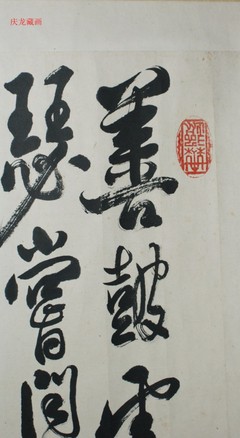 庆龙藏画
善鼓雲
瑟嘗聞